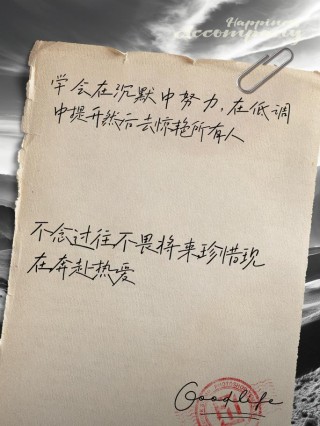 Happiness
accompany
学会在沉默中努力，在低调
中提升然后去惊艳所有人
不念过往不畏将来珍惜现
在奔赴热爱
Goodlife